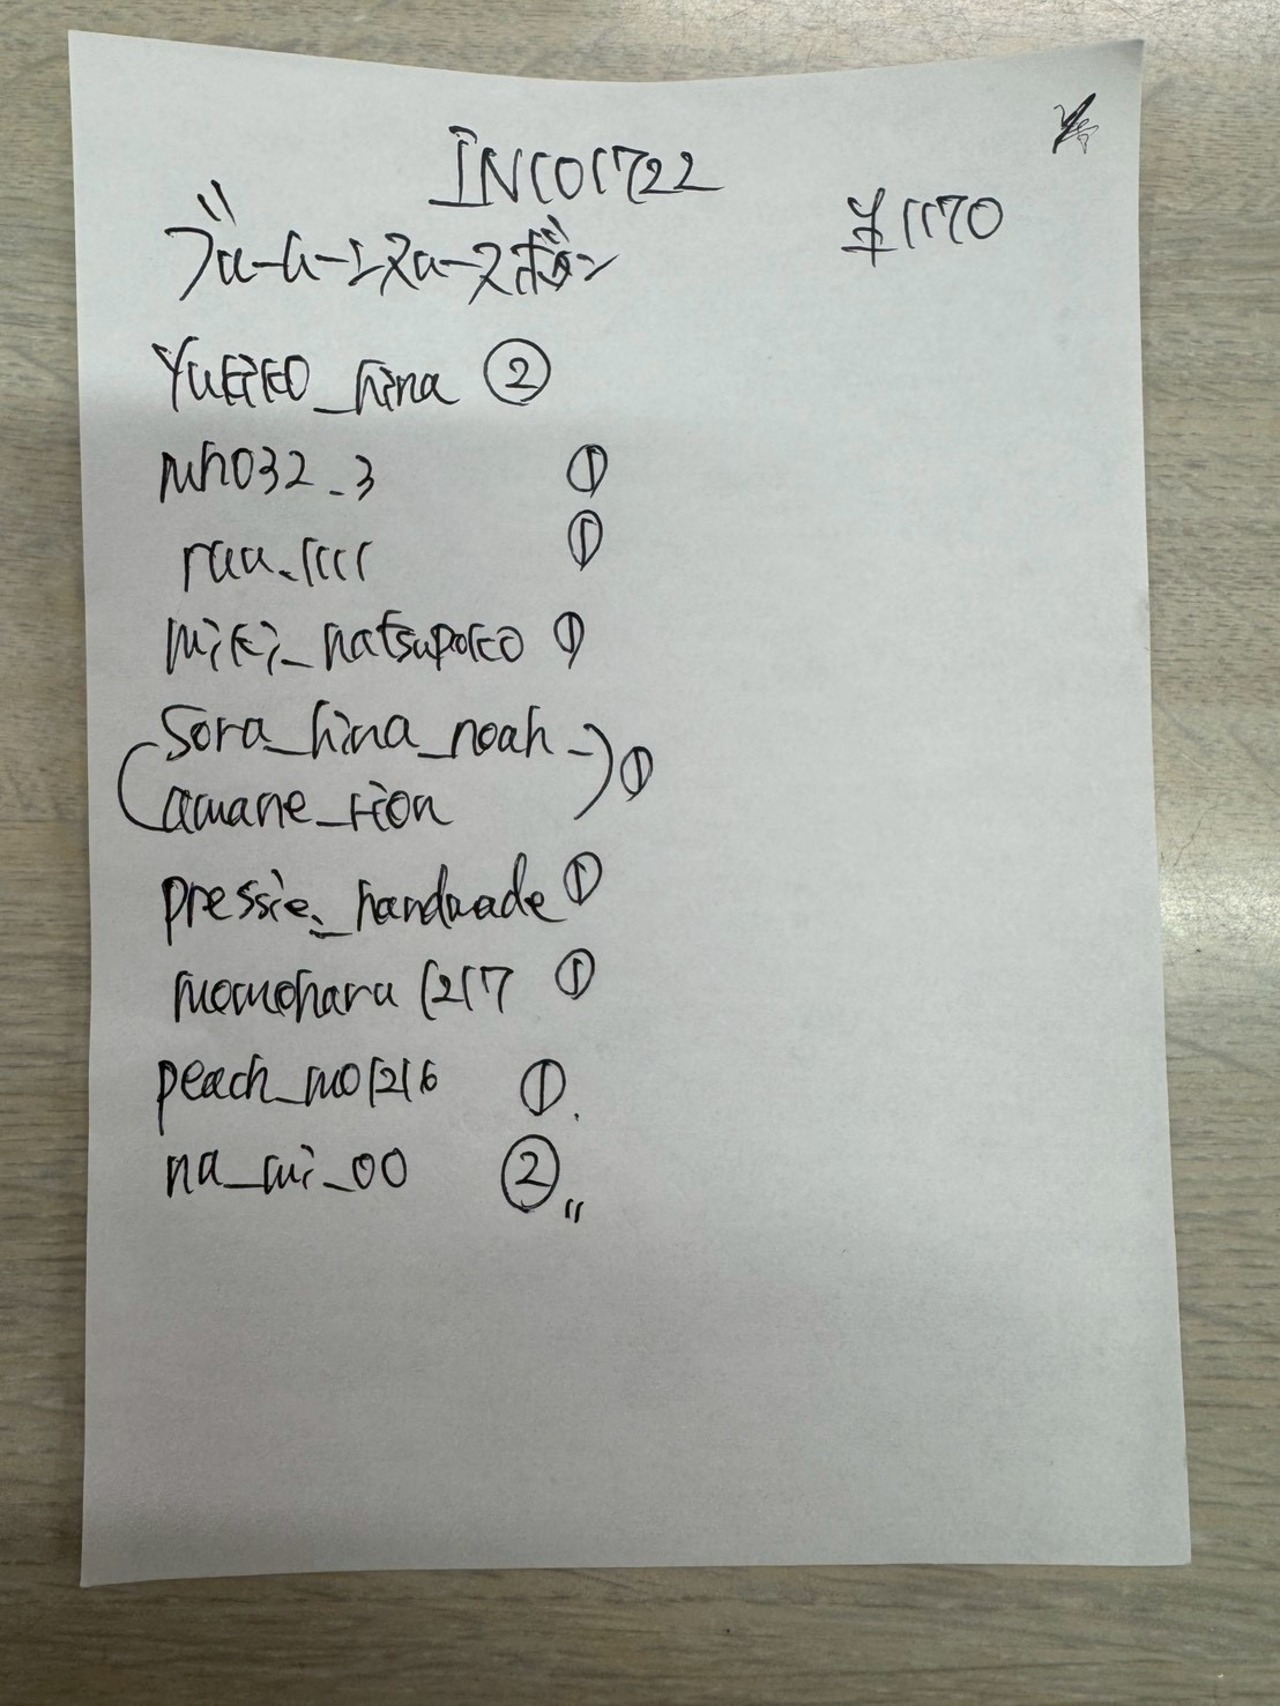 IN101722
¥1170
ブルームーンスヌースボタン
yukiko_hina ②
mh032_3 ①
ruu_1111 ①
miki_natsupoko ①
(sora_hina_noah_
amane_rion) ①
pressie._handmade ①
momoharu1217 ①
peach_mo1216 ①.
na_mi_00 ②〃